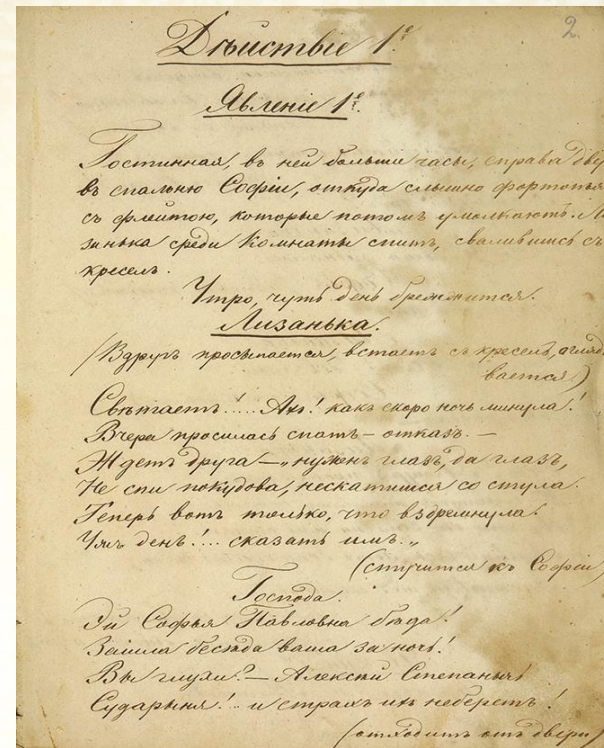 2.
Дѣиствіе 1е.
Явленіе 1е.
Гостинная, въ ней большіи часы, справа две
въ спальню Софіи, откуда слышно фортопья
съ флейтою, которые потомъ умолкаютъ. Ли
занька среди комнаты спитъ, свалившись съ
креселъ.
Утро, чуть день брежжится.
Лизанька.
(Вдругъ просыпается, встаетъ съ креселъ, огляды
вается)
Свѣтаетъ!.... Ахъ! какъ скоро ночь минула!
Вчера просилась спать – отказъ. –
Ждетъ друга – „нуженъ глазъ, да глазъ,
Не спи покудова, нескатишься со стула.
Теперь вотъ только, что вздремнула
Ужъ день!... сказать имъ.„
(стучится къ Софіи)
Господа.
Эй Софья Павловна бѣда!
Зашла бесѣда ваша за ночь!
Вы глухи? – Алексѣй Степанычъ
Сударыня!.. и страхъ ихъ неберетъ!
(отходитъ отъ двери)